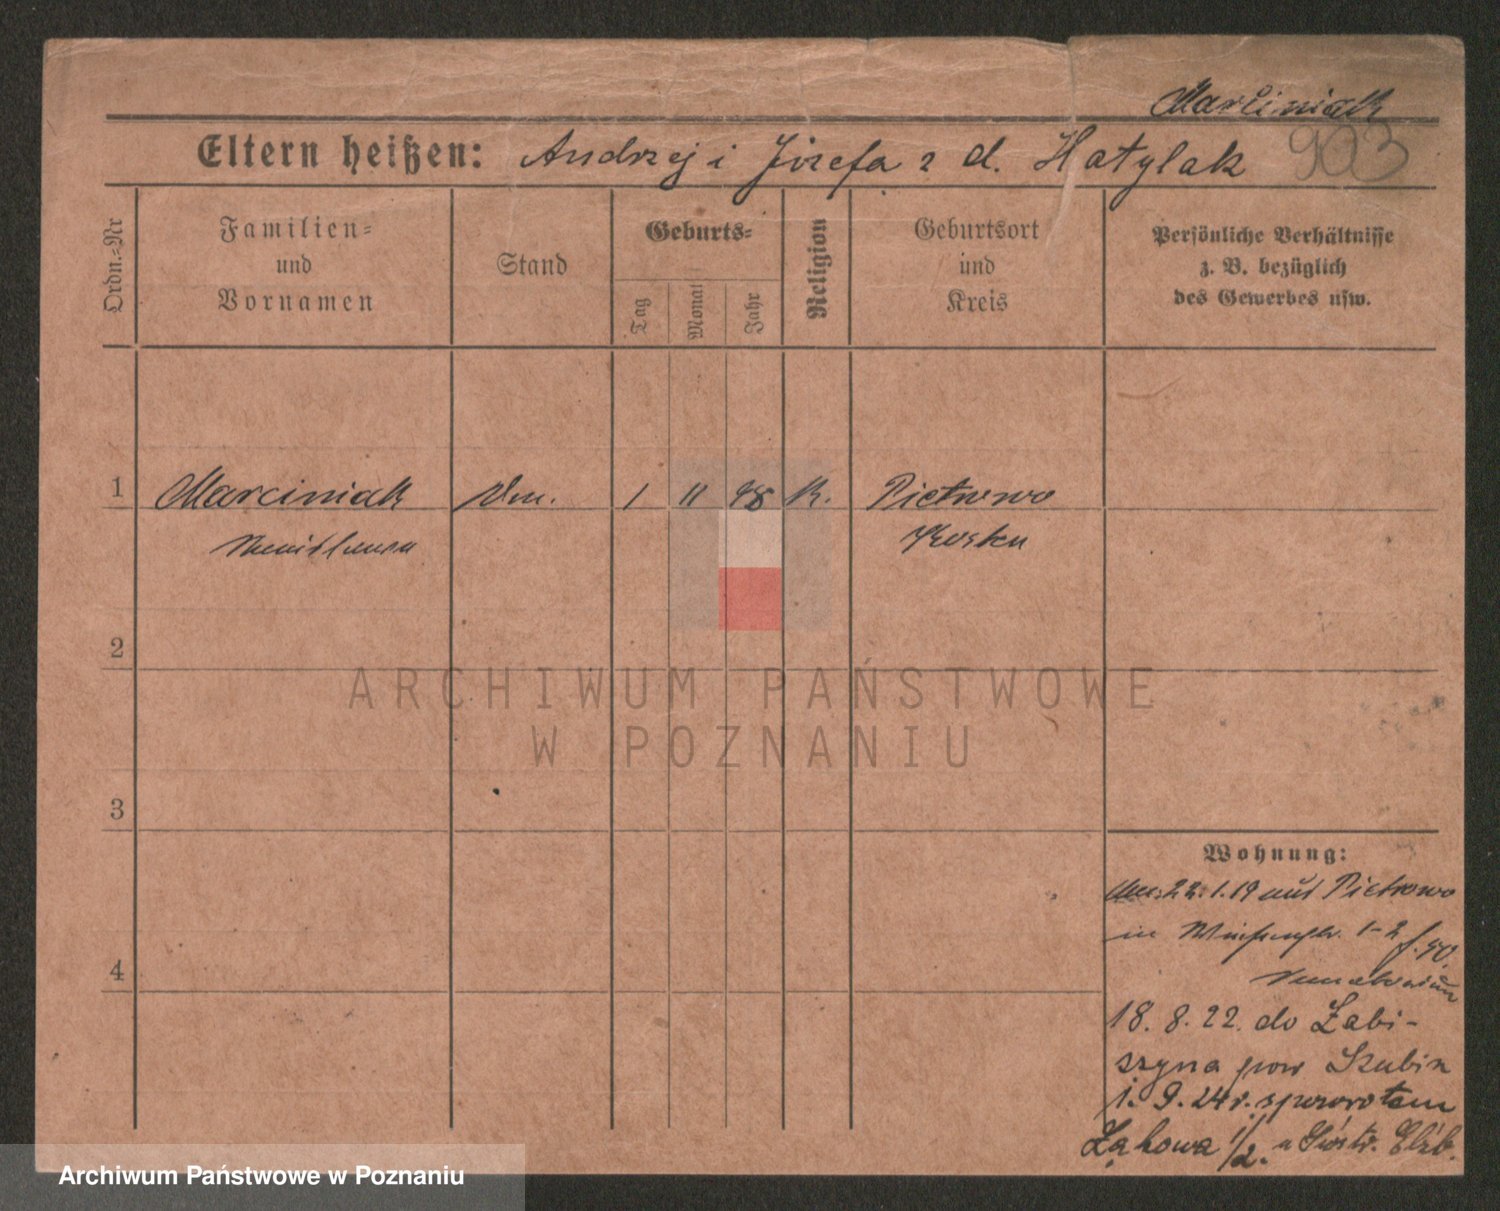 Marciniak
Eltern heißen: Andrzej i Józefa z d. Hatylak
903
Ordn.-Nr
Familien-
und
Vornamen
Stand
Geburts-
Tag
Monat
Jahr
Religion
Geburtsort
und
Kreis
Persönliche Verhältnisse
z. B. bezüglich
des Gewerbes usw.
1 Marciniak 1 11 98 K. Pietrowo
Stanislawa Kosten
2
ARCHIWUM PAŃSTWOWE
W POZNANIU
3
4
Wohnung:
22.1.19 aus Pietrowo
in 1-2
18. 8. 22. do Łabi-
szyna pow Szubin
1. 9. 24 r. spowrotem
Łąkowa 1/2. u Sióstr. Elżb.
Archiwum Państwowe w Poznaniu